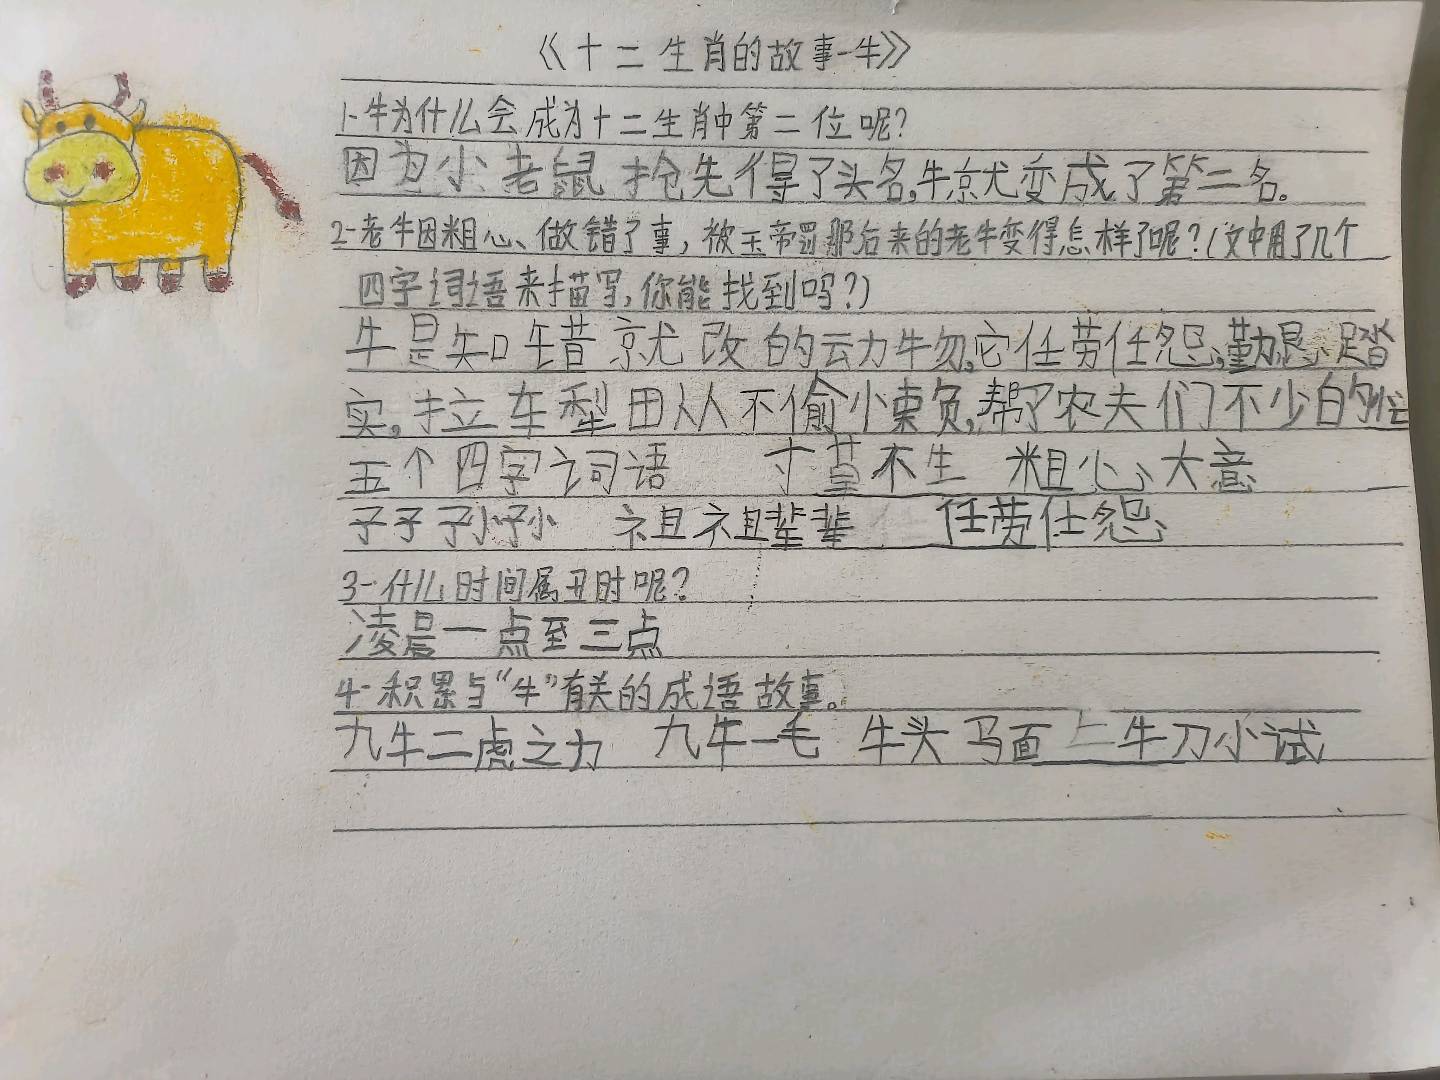 《十二生肖的故事-牛》
1-牛为什么会成为十二生肖中第二位呢?
因为小老鼠抢先得了头名,牛就变成了第二名。
2-老牛因粗心、做错了事,被玉帝罚那后来的老牛变得怎样了呢?(文中用了几个
四字词语来描写,你能找到吗?)
牛是知错就改的动物,它任劳任怨,勤恳踏
实,拉车犁田从不偷小懒,帮了农夫们不少的忙
五个四字词语 寸草不生 粗心大意
子子孙孙 祖祖辈辈 任劳任怨
3-什么时间属丑时呢?
凌晨一点至三点
4-积累与“牛”有关的成语故事。
九牛二虎之力 九牛一毛 牛头马面 牛刀小试